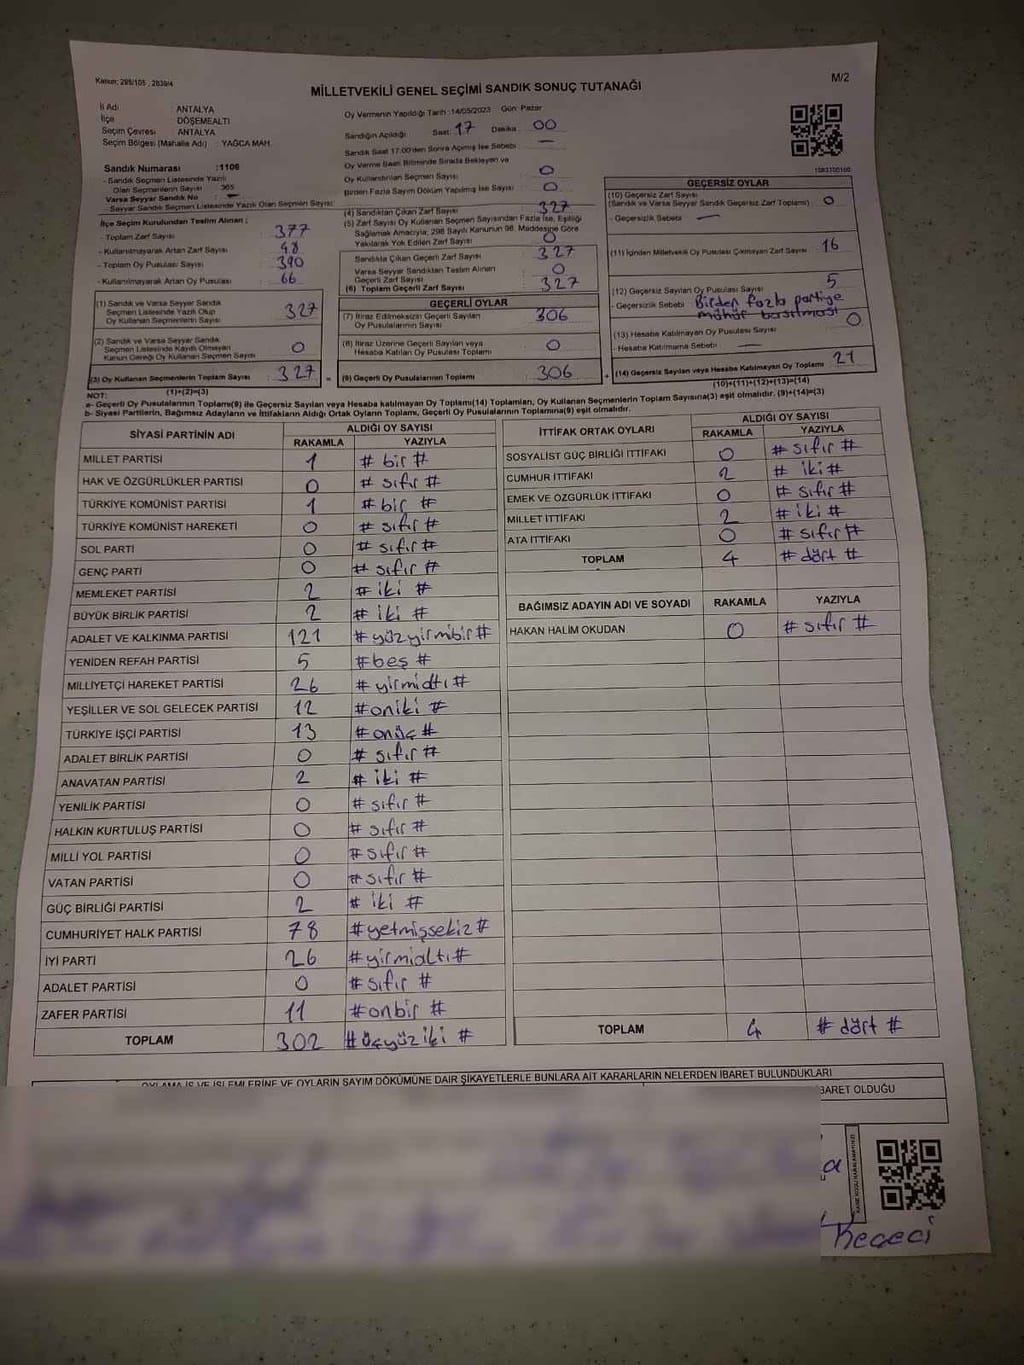 Kanun: 298/105 , 2839/4
M/2
MİLLETVEKİLİ GENEL SEÇİMİ SANDIK SONUÇ TUTANAĞI
İl Adı : ANTALYA
İlçe : DÖŞEMEALTI
Seçim Çevresi : ANTALYA
Seçim Bölgesi (Mahalle Adı) : YAĞCA MAH.
Sandık Numarası :1106
- Sandık Seçmen Listesinde Yazılı
Olan Seçmenlerin Sayısı 365
Varsa Seyyar Sandık No : —
- Seyyar Sandık Seçmen Listesinde Yazılı Olan Seçmen Sayısı:
İlçe Seçim Kurulundan Teslim Alınan ;
- Toplam Zarf Sayısı : 377
- Kullanılmayarak Artan Zarf Sayısı : 48
- Toplam Oy Pusulası Sayısı : 390
- Kullanılmayarak Artan Oy Pusulası : 66
(1) Sandık ve Varsa Seyyar Sandık
Seçmen Listesinde Yazılı Olup
Oy Kullanan Seçmenlerin Sayısı : 327
(2) Sandık ve Varsa Seyyar Sandık
Seçmen Listesinde Kaydı Olmayan
Kanun Gereği Oy Kullanan Seçmen Sayısı : 0
(3) Oy Kullanan Seçmenlerin Toplam Sayısı : 327
(1)+(2)=(3)
Oy Vermenin Yapıldığı Tarih :14/05/2023 Gün: Pazar
Sandığın Açıldığı Saat: 17 Dakika : 00
Sandık Saat 17:00'den Sonra Açılmış İse Sebebi : —
Oy Verme Saati Bitiminde Sırada Bekleyen ve
Oy Kullandırılan Seçmen Sayısı : 0
Birden Fazla Sayım Döküm Yapılmış İse Sayısı : 0
(4) Sandıktan Çıkan Zarf Sayısı : 327
(5) Zarf Sayısı Oy Kullanan Seçmen Sayısından Fazla İse, Eşitliği
Sağlamak Amacıyla, 298 Sayılı Kanunun 98. Maddesine Göre
Yakılarak Yok Edilen Zarf Sayısı : 0
Sandıkta Çıkan Geçerli Zarf Sayısı : 327
Varsa Seyyar Sandıktan Teslim Alınan
Geçerli Zarf Sayısı : 0
(6) Toplam Geçerli Zarf Sayısı : 327
GEÇERLİ OYLAR
(7) İtiraz Edilmeksizin Geçerli Sayılan
Oy Pusulalarının Sayısı : 306
(8) İtiraz Üzerine Geçerli Sayılan veya
Hesaba Katılan Oy Pusulası Toplamı : 0
(9) Geçerli Oy Pusulalarının Toplamı : 306
GEÇERSİZ OYLAR
(10) Geçersiz Zarf Sayısı
(Sandık ve Varsa Seyyar Sandık Geçersiz Zarf Toplamı) : 0
- Geçersizlik Sebebi : —
(11) İçinden Milletvekili Oy Pusulası Çıkmayan Zarf Sayısı : 16
(12) Geçersiz Sayılan Oy Pusulası Sayısı : 5
- Geçersizlik Sebebi : Birden fazla partiye
mühür basılması
(13) Hesaba Katılmayan Oy Pusulası Sayısı : 0
- Hesaba Katılmama Sebebi : —
(14) Geçersiz Sayılan veya Hesaba Katılmayan Oy Toplamı : 21
(10)+(11)+(12)+(13)=(14)
NOT:
a- Geçerli Oy Pusulalarının Toplamı(9) ile Geçersiz Sayılan veya Hesaba katılmayan Oy Toplamı(14) Toplamları, Oy Kullanan Seçmenlerin Toplam Sayısına(3) eşit olmalıdır. (9)+(14)=(3)
b- Siyasi Partilerin, Bağımsız Adayların ve İttifakların Aldığı Ortak Oyların Toplamı, Geçerli Oy Pusulalarının Toplamına(9) eşit olmalıdır.
SİYASİ PARTİNİN ADI ALDIĞI OY SAYISI
RAKAMLA YAZIYLA
MİLLET PARTİSİ 1 # bir #
HAK VE ÖZGÜRLÜKLER PARTİSİ 0 # sıfır #
TÜRKİYE KOMÜNİST PARTİSİ 1 # bir #
TÜRKİYE KOMÜNİST HAREKETİ 0 # sıfır #
SOL PARTİ 0 # sıfır #
GENÇ PARTİ 0 # sıfır #
MEMLEKET PARTİSİ 2 # iki #
BÜYÜK BİRLİK PARTİSİ 2 # iki #
ADALET VE KALKINMA PARTİSİ 121 # yüzyirmibir #
YENİDEN REFAH PARTİSİ 5 # beş #
MİLLİYETÇİ HAREKET PARTİSİ 26 # yirmialtı #
YEŞİLLER VE SOL GELECEK PARTİSİ 12 # oniki #
TÜRKİYE İŞÇİ PARTİSİ 13 # onüç #
ADALET BİRLİK PARTİSİ 0 # sıfır #
ANAVATAN PARTİSİ 2 # iki #
YENİLİK PARTİSİ 0 # sıfır #
HALKIN KURTULUŞ PARTİSİ 0 # sıfır #
MİLLİ YOL PARTİSİ 0 # sıfır #
VATAN PARTİSİ 0 # sıfır #
GÜÇ BİRLİĞİ PARTİSİ 2 # iki #
CUMHURİYET HALK PARTİSİ 78 # yetmişsekiz #
İYİ PARTİ 26 # yirmialtı #
ADALET PARTİSİ 0 # sıfır #
ZAFER PARTİSİ 11 # onbir #
TOPLAM 302 # üçyüziki #
İTTİFAK ORTAK OYLARI ALDIĞI OY SAYISI
RAKAMLA YAZIYLA
SOSYALİST GÜÇ BİRLİĞİ İTTİFAKI 0 # sıfır #
CUMHUR İTTİFAKI 2 # iki #
EMEK VE ÖZGÜRLÜK İTTİFAKI 0 # sıfır #
MİLLET İTTİFAKI 2 # iki #
ATA İTTİFAKI 0 # sıfır #
TOPLAM 4 # dört #
BAĞIMSIZ ADAYIN ADI VE SOYADI RAKAMLA YAZIYLA
HAKAN HALİM OKUDAN 0 # sıfır #
TOPLAM 4 # dört #
OYLAMA İŞ VE İŞLEMLERİNE VE OYLARIN SAYIM DÖKÜMÜNE DAİR ŞİKAYETLERLE BUNLARA AİT KARARLARIN NELERDEN İBARET BULUNDUKLARI
İBARET OLDUĞU